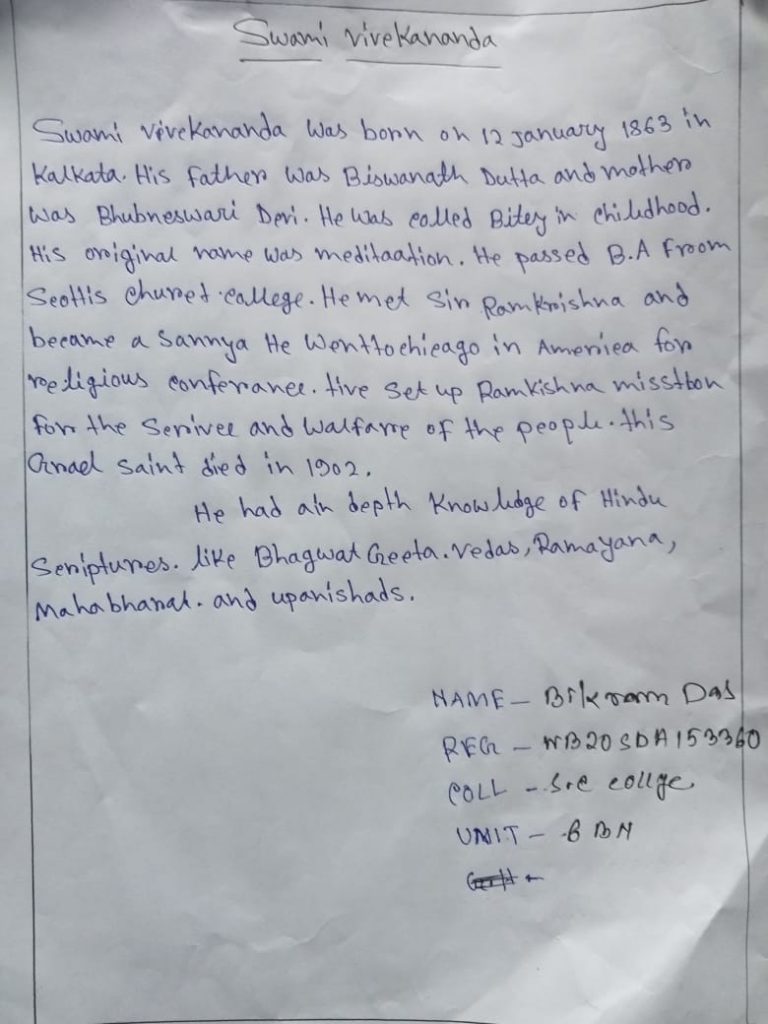 Swami Vivekananda
Swami Vivekananda was born on 12 january 1863 in
Kalkata. His father was Biswanath Dutta and mother
was Bhubneswari Devi. He was called Bitey in chiledhood.
His original name was meditaation. He passed B.A froom
Scottis churct college. He met Sir Ramkrishna and
became a Sannya He wenttochicago in America for
religious conferance. Hve set up Ramkishna misstbon
for the Serivce and walfarre of the people. this
Graet saint died in 1902.
He had ain depth knowledge of Hindu
Scriptures. like Bhagwat Geeta. vedas, Ramayana,
Mahabharat. and upanishads.
NAME - Bikram Das
REG - WB20SDA153360
COLL - S.r.c collge
UNIT - 6 BN